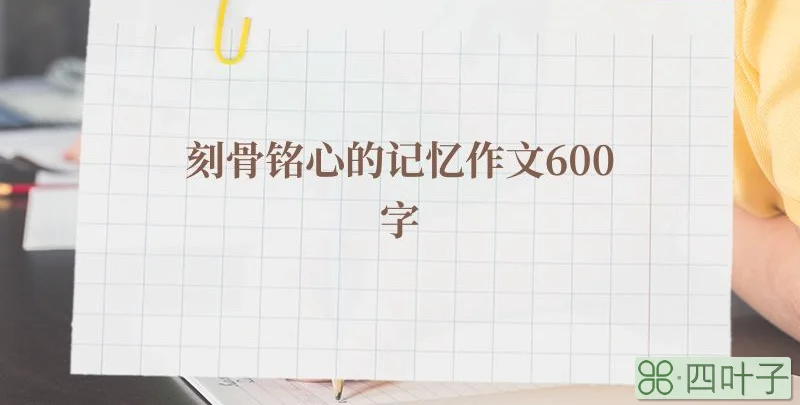 刻骨铭心的记忆作文600
字
四叶子